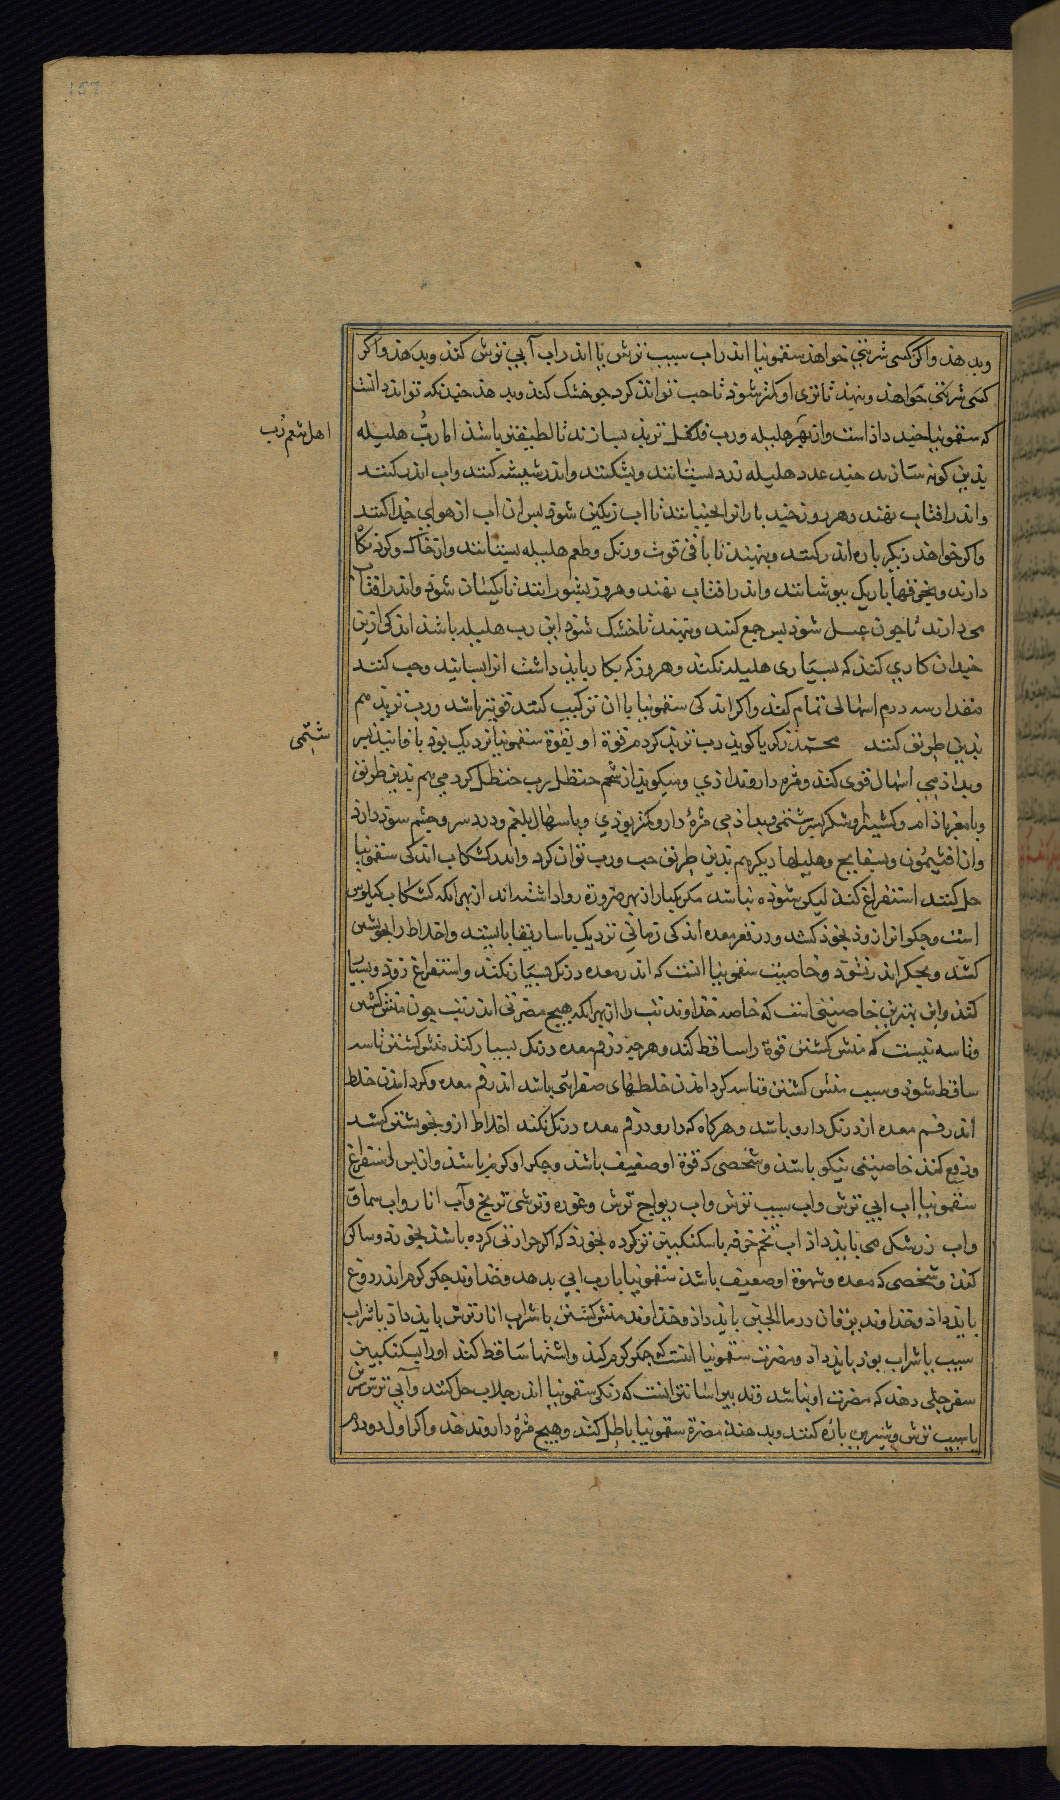 وبدهند واکر کسی شربتی خواهد سقمونیا اندر اب سیب ترش یا اندر اب آبی ترش کنند وبدهند واکر
کسی شربتی خواهد وبنهند تا تری او کمتر شود تا حب تواند کرد جو خشک کنند وبدهند جندانکه تواند دانست
که سقمونیا جند داذ است واز بهر هلیله ورب تربد بسازند تا لطیفتر باشد اما رب هلیله
بدین کونه سازند جند عدد هلیله زرد بستانند وبشکنند واندر شیشه کنند واب اندر کنند
واندر افتاب نهند وهر روز جند بار انرا بجنبانند تا اب رنکین شود بس ان اب از هوای جدا کنند
واکر خواهند دیکر باره اندر کنند وبنهند تا باقی قوت ورنک وطعم هلیله بستانند واز خاک وکرد نکاه
دارند وبخرقها باریک ببوشانند واندر افتاب نهند وهر روز بشورانند تا یکسان شود واندر افتاب
می دارند تا جون عسل شود بس جمع کنند وبنهند تا خشک شود این رب هلیله باشد اندکی ازین
جندان کاری کند که بسیاری هلیله نکند وهر روز که بکار باید داشت انرا بسایند وحب کنند
مقدار سه درم اسهالی تمام کند واکر اندکی سقمونیا با ان ترکیب کنند قویتر باشد ورب تربد هم
بدین طریق کنند محمد زکریا کوید رب تربد کرد مر قوة او بقوة سقمونیا نزدیک بود با فانیذ بیر
وبداذمی اسهال قوی کند ومزه دارو ندادی ومیکوید از شحم حنظل رب حنظل کردمی هم بدین طریق
وبا مغز باذام وکتیرا وشکر بسرشتمی وبداذمی مزۀ دارو کمتر بودی وباسهال بلغم ودرد سر وچشم سود دارد
وان افتیمون وبسفایج وهلیلها دیکر هم بدین طریق حب ورب توان کرد واندر کشکاب اندکی سقمونیا
حل کنند استفراغ کند لیکن ستوده نباشد مکر یکبار از بهر ضرورة روا داشته اند از بهر انکه کشکاب کیلوس
است وجکر انرا زود بخود کشد ودر قعر معده اندکی زمانی نزدیک باساریقا بایستد واخلاط را بخویشتن
کشد وبجکر اندر نشود وخاصیت سقمونیا انست که اندر معده درنک بسیار نکند واستفراغ زود وبسیار
کند واین بهترین خاصیتی است که خاصه خداوند تب را از بهر انکه هیچ مضرتی اندر تب جون منش کشتن
وتاسه نیست که منش کشتن قوة را ساقط کند وهرجه در فم معده درنک بسیار کند منش کشتن وتاسه
ساقط شود وسبب منش کشتن وتاسه کرد امدن خلطهای صفرائی باشد اندر فم معده وکرد امدن خلط
اندر فم معده از درنک دارو باشد وهرکاه که دارو در فم معده درنک نکند اخلاط ازو بخویشتن کشد
ودفع کند خاصیتی نیکو باشد وشخصی که قوة او ضعیف باشد وجکر او کرم باشد واز بس استفراغ
سقمونیا اب ابی ترش واب سیب ترش واب ریواج ترش وغوره وترشی ترنج وآب انار واب سماق
واب زرشک می باید داذ اب تخم خرفه با سکنکبین تر کرده بخورد که اکر حرارتی کرده باشد بخورد وساکن
کند وشخصی که معده وشهوة او ضعیف باشد سقمونیا با رب ابی بدهد وخداوند جکر کرم را اندر دوغ
باید داد وخداوند یرقان در ماالجبن باید داذ وخداوند منش کشتن با شراب انار ترش باید داذ یا شراب
سیب یا شراب بود باید داد ومضرت سقمونیا انست که جکر کرم کند واشتها ساقط کند اورا سکنکبین
سفرجلی دهند که مضرت او نباشد وتدبیر اسانتر انست که اندکی سقمونیا اندر جلاب حل کنند وآبی ترش
یا سیب ترش وشیرین باره کنند وبدهند مضرة سقمونیا باطل کند وهیچ مزۀ دارو ندهد واکر اول دو درم
اهل شعم رب
شتمی